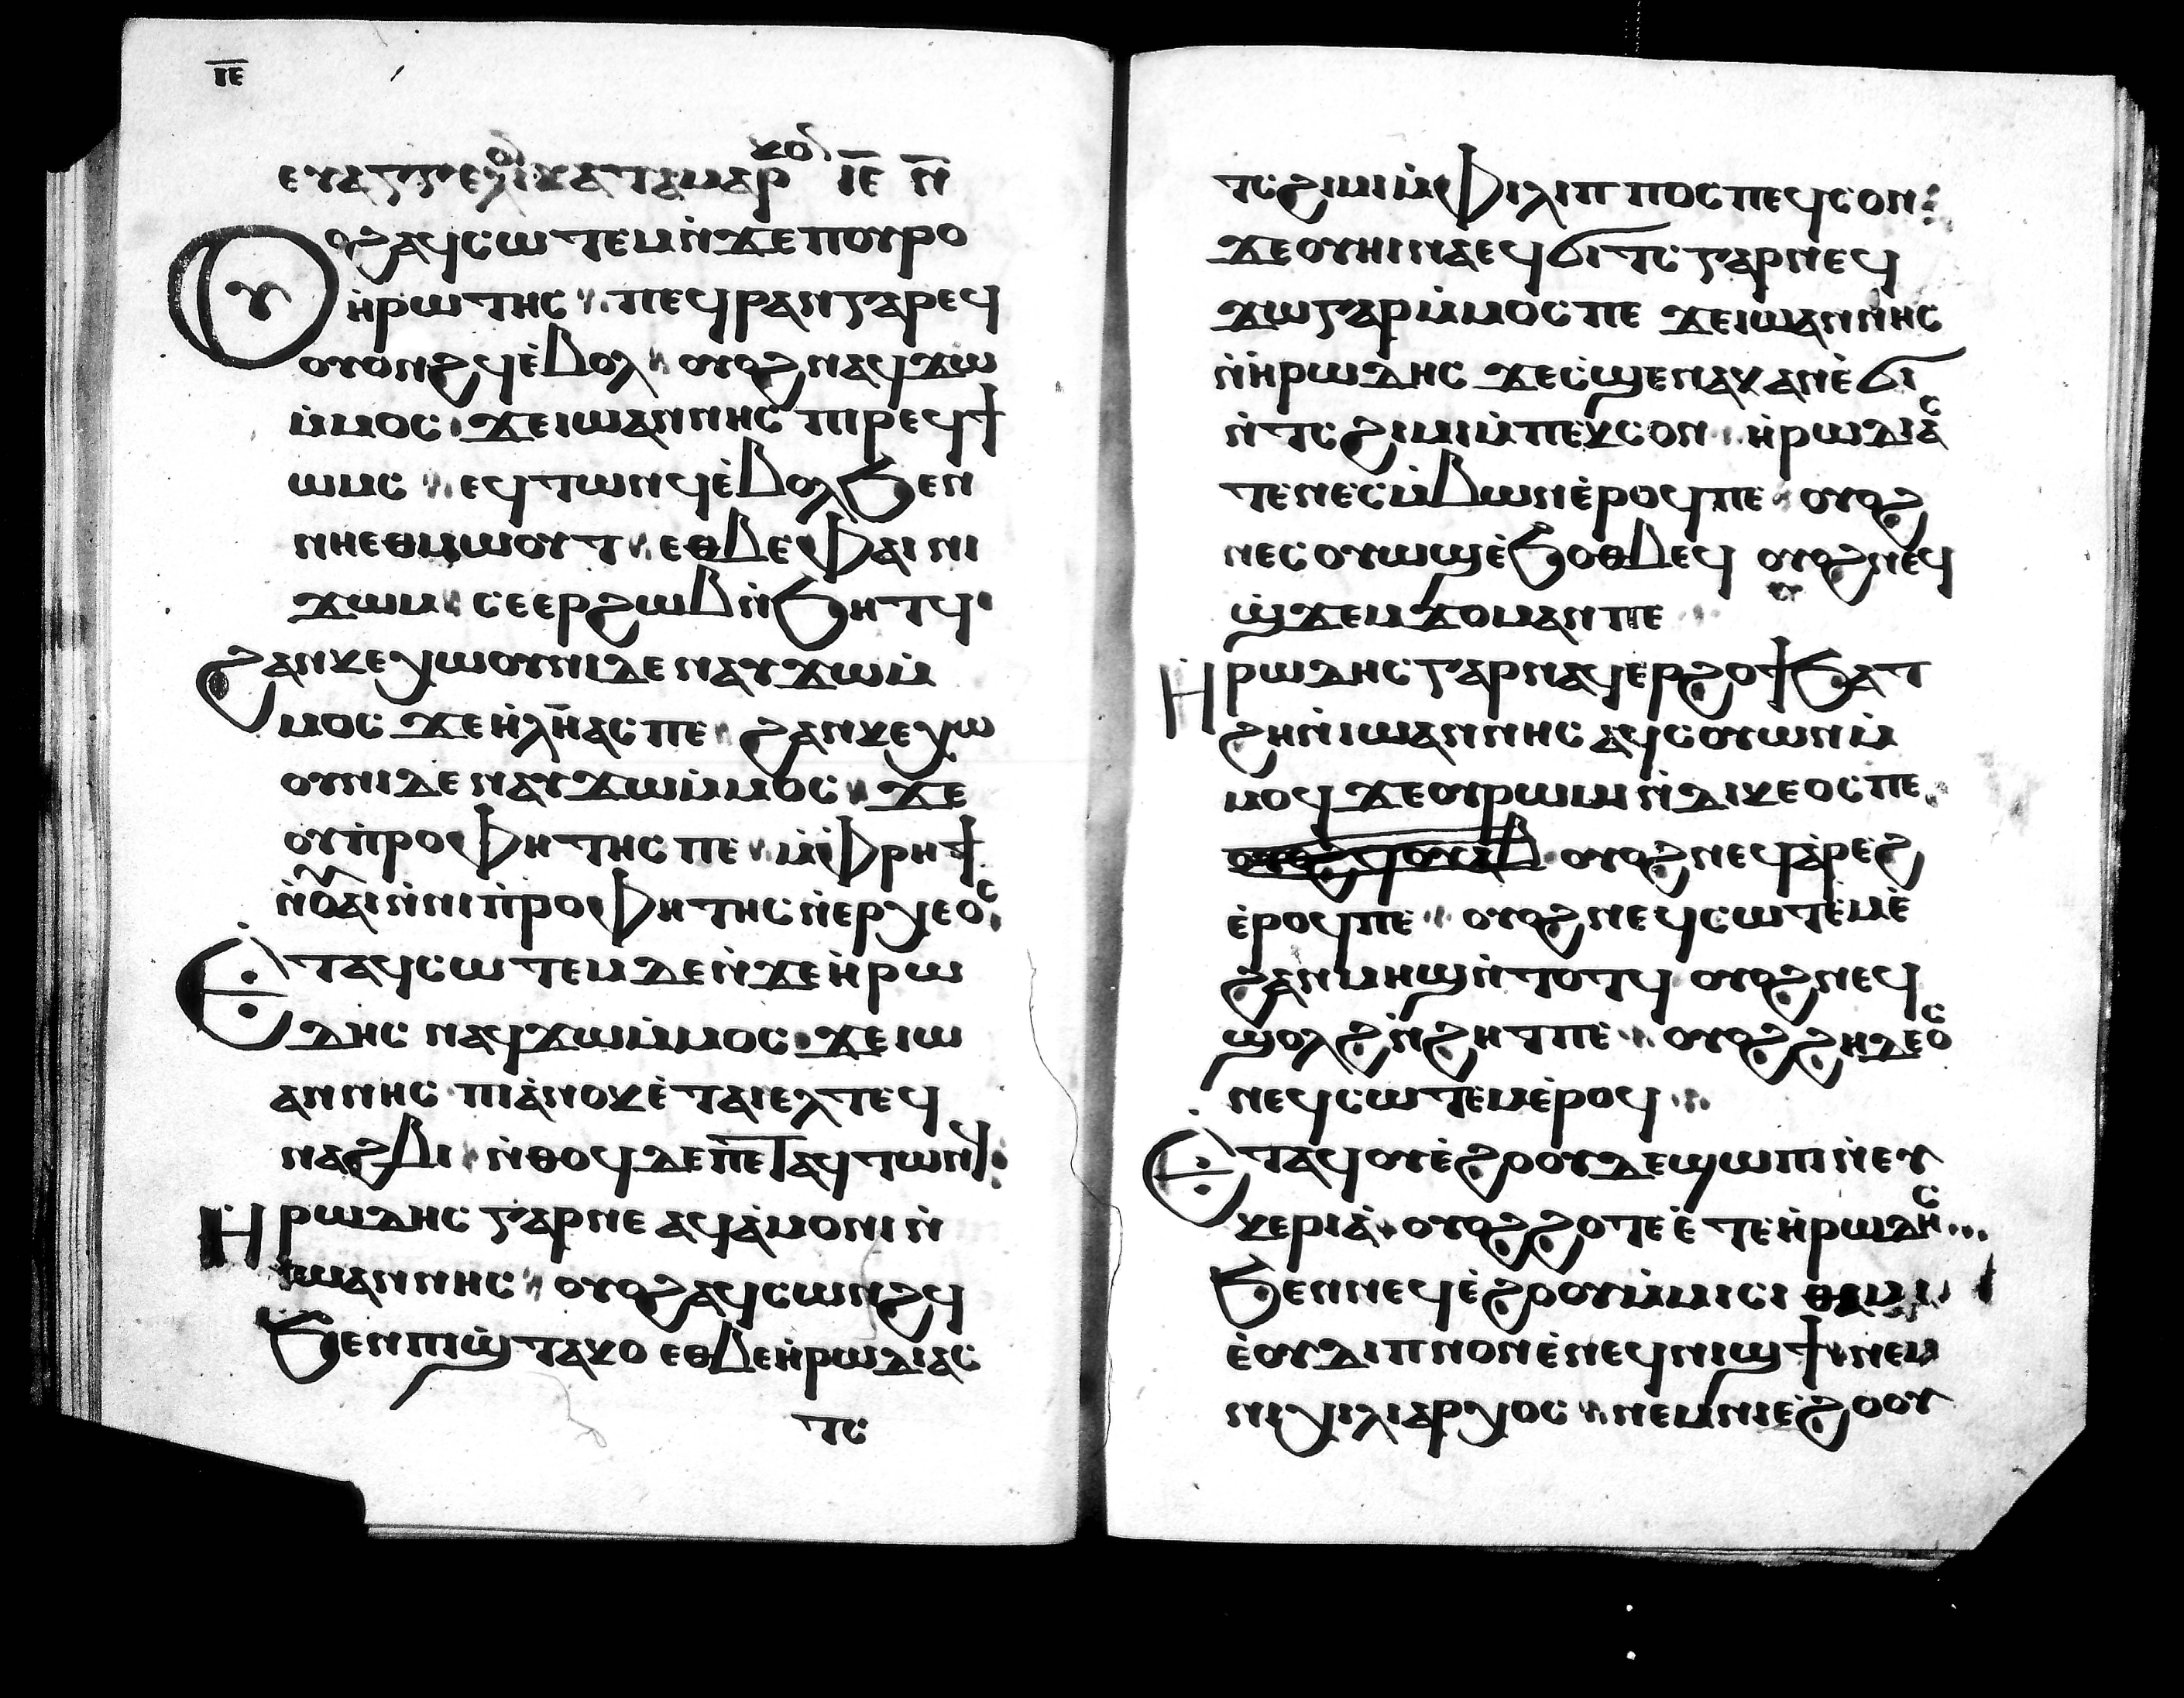 ⲓ̅ⲉ̅
ⲉⲩⲁⲅⲅⲉⲗⲓⲟ ⲕⲁⲧⲁ ⲙⲁⲣⲕⲟ ⲓ̅ⲉ̅ ⲛ̅
ⲟⲩⲟϩ ⲁϥⲥⲱⲧⲉⲙ ⲛ̇ϫⲉ ⲡⲟⲩⲣⲟ
ⲏ̇ⲣⲱⲧⲏⲥ ⲡⲉϥⲣⲁⲛ ⲅⲁⲣ ⲉϥ
ⲟⲩⲟⲛϩϥ ⲉ̇ⲃⲟⲗ ⲟⲩⲟϩ ⲛⲁϥϫⲱ
ⲙ̇ⲙⲟⲥ ϫⲉ ⲓⲱⲁⲛⲛⲏⲥ ⲡⲓⲣⲉϥϯ
ⲱⲙⲥ ⲉϥⲧⲱⲛϥ ⲉ̇ⲃⲟⲗ ϧⲉⲛ
ⲛⲏⲉⲑⲙⲱⲟⲩⲧ ⲉⲑⲃⲉ ⲫⲁⲓ ⲛⲓ
ϫⲱⲙ ⲥⲉⲉⲣϩⲱⲃ ⲛ̇ϧⲏⲧϥ
ϩⲁⲛⲕⲉⲭⲱⲟⲩⲛⲓ ⲇⲉ ⲛⲁⲩϫⲱ ⲙ̇
ⲙⲟⲥ ϫⲉ ⲏ̇ⲗⲓⲏⲁⲥ ⲡⲉ ϩⲁⲛⲕⲉⲭⲱ
ⲟⲩⲛⲓ ⲇⲉ ⲛⲁⲩϫⲱ ⲙ̇ⲙⲟⲥ ϫⲉ
ⲟⲩⲡ̇ⲣⲟⲫⲏⲧⲏⲥ ⲡⲉ ⲙ̇ⲫⲣⲏϯ
ⲛ̇ⲟⲩⲁⲓ ⲛ̇ⲛⲓⲡ̇ⲣⲟⲫⲏⲧⲏⲥ ⲛ̇ⲉⲣⲭⲉⲟⲥ
ⲉ̇ⲧⲁϥⲥⲱⲧⲉⲙ ⲇⲉ ⲛ̇ϫⲉ ⲏ̇ⲣⲱ
ⲇⲏⲥ ⲛⲁϥϫⲱ ⲙ̇ⲙⲟⲥ ϫⲉ ⲓⲱ
ⲁⲛⲛⲏⲥ ⲡⲓⲁ̇ⲛⲟⲕ ⲉ̇ⲧⲁⲓⲉⲗ ⲧⲉϥ
ⲛⲁϩⲃⲓ ⲛ̇ⲑⲟϥ ⲇⲉ ⲡⲉⲧⲁϥⲧⲱⲛϥ
ⲏ̇ⲣⲱⲇⲏⲥ ⲅⲁⲣ ⲛⲉ ⲁϥⲁ̇ⲙⲟⲛⲓ ⲛ̇
ⲓⲱⲁⲛⲛⲏⲥ ⲟⲩⲟϩ ⲁϥⲥⲱⲛϩϥ
ϧⲉⲛ ⲡⲓϣ̇ⲧⲁⲕⲟ ⲉⲑⲃⲉ ⲏ̇ⲣⲱⲇⲓⲁⲥ
ⲧⲥ
ⲧⲥϩⲓⲙⲓ ⲙ̇ⲫⲓⲗⲓⲡⲡⲟⲥ ⲡⲉϥⲥⲟⲛ
ϫⲉ ⲟⲩⲏⲓ ⲛⲁⲉϥϭⲓⲧⲥ ⲅⲁⲣ ⲛⲉϥ
ϫⲱ ⲅⲁⲣ ⲙ̇ⲙⲟⲥ ⲡⲉ ϫⲉ ⲓⲱⲁⲛⲛⲏⲥ
ⲛ̇ⲏⲣⲱⲇⲏⲥ ϫⲉ ⲥ̇ϣⲉ ⲛⲁⲕ ⲁⲛ ⲉ̇ϭⲓ
ⲛ̇ⲧⲥϩⲓⲙⲓ ⲙ̇ⲡⲉⲕⲥⲟⲛ ⲏ̇ⲣⲱⲇⲓⲁⲥ
ⲧⲉ ⲛⲉⲥⲙ̇ⲃⲱⲛ ⲉ̇ⲣⲟϥ ⲡⲉ ⲟⲩⲟϩ
ⲛⲉⲥⲟⲩⲱϣ ⲉ̇ϧⲟⲑⲃⲉϥ ⲟⲩⲟϩ ⲛⲉϥ
ϣ̇ϫⲉⲙϫⲟⲙ ⲁⲛ ⲡⲉ
ⲏ̇ⲣⲱⲇⲏⲥ ⲅⲁⲣ ⲛⲁϥⲉⲣϩⲟϯ ϧⲁⲧ
ϩⲏ ⲛ̇ⲓⲱⲁⲛⲛⲏⲥ ⲁϥⲥⲟⲩⲱⲛ ⲙ̇
ⲙⲟϥ ϫⲉ ⲟⲩⲣⲱⲙⲓ ⲛ̇ⲇⲓⲕⲉⲟⲥ ⲡⲉ
ⲟⲩⲟϩ ⲛⲉϥⲁ̇ⲣⲉϩ
ⲉ̇ⲣⲟϥ ⲡⲉ ⲟⲩⲟϩ ⲛⲉϥⲥⲱⲧⲉⲙ ⲉ̇
ϩⲁⲛⲙⲏϣ ⲛ̇ⲧⲟⲧϥ ⲟⲩⲟϩ ⲛⲉϥ
ϣⲟⲗϩ ⲛ̇ϩⲏⲧ ⲡⲉ ⲟⲩⲟϩ ϩⲏⲇⲉⲟⲥ
ⲛⲉϥⲥⲱⲧⲉⲙ ⲉ̇ⲣⲟϥ
ⲉ̇ⲧⲁϥⲟⲩⲉ̇ϩⲟⲟⲩ ⲇⲉ ϣⲱⲡⲓ ⲛ̇ⲉⲩ
ⲕⲉⲣⲓⲁ̇ ⲟⲩⲟϩ ϩⲟⲧⲉ ⲉ̇ⲧⲉ ⲏ̇ⲣⲱⲇⲏⲥ
ϧⲉⲛ ⲛⲉϥⲉ̇ϩⲟⲟⲩ ⲙ̇ⲙⲓⲥⲓ
ⲉ̇ⲟⲩⲇⲓⲡⲛⲟⲛ ⲉ̇ⲛⲉϥⲛⲓϣϯ ⲛⲉⲙ
ⲛⲓⲭⲓⲗⲓⲁⲣⲭⲟⲥ ⲛⲉⲙ ⲛⲓⲉ̇ϩⲟⲟⲩ